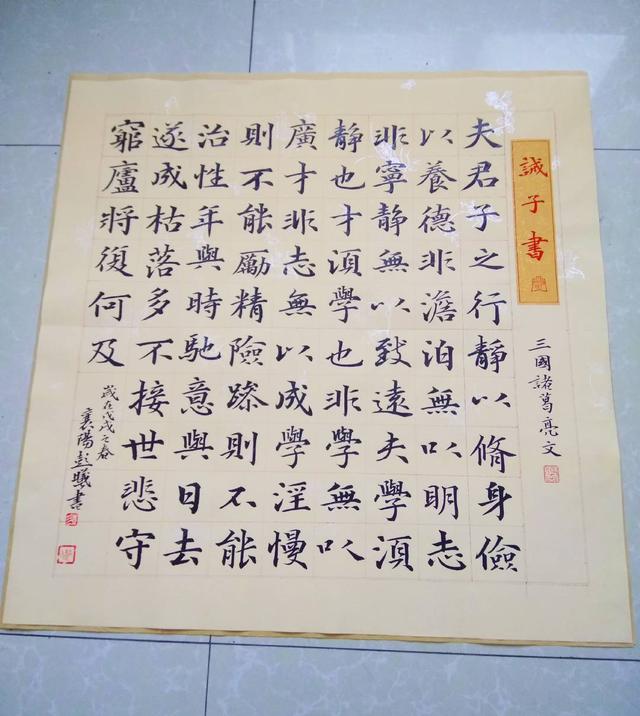 誡子書
三國諸葛亮文
夫君子之行靜以脩身儉
以養德非澹泊無以明志
非寧靜無以致遠夫學湏
靜也才湏學也非學無以
廣才非志無以成學淫慢
則不能勵精險躁則不能
治性年與時馳意與日去
遂成枯落多不接世悲守
窮廬將復何及
歲在戊戌之春
襄陽彭書